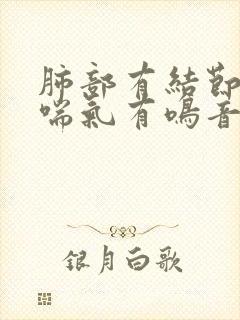 肺部有結節
喘氣有鳴音
銀月白歌